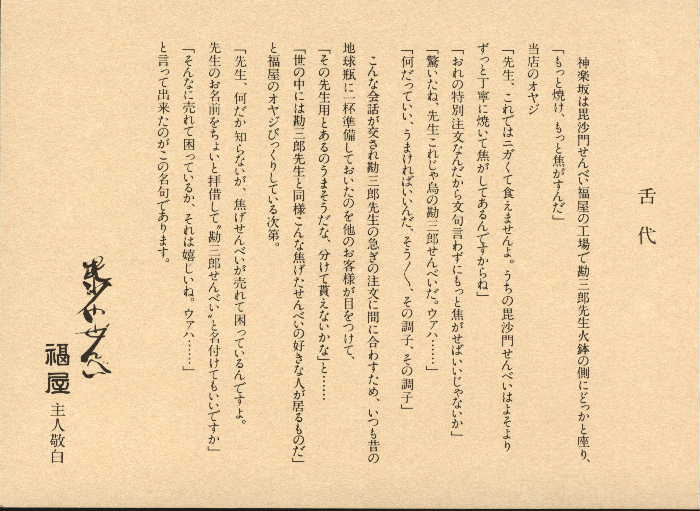 舌代
神楽坂は毘沙門せんべい福屋の工場で勘三郎先生火鉢の側にどっかと座り、
「もっと焼け、もっと焦がすんだ」
当店のオヤジ
「先生、これではニガくて食えませんよ。うちの毘沙門せんべいはよそより
ずっと丁寧に焼いて焦がしてあるんですからね」
「おれの特別注文なんだから文句言わずにもっと焦がせばいいじゃないか」
「驚いたね、先生これじゃ烏の勘三郎せんべいだ。ウァハ……」
「何だっていい、うまければいいんだ、そう〱、その調子、その調子」
こんな会話が交され勘三郎先生の急ぎの注文に間に合わすため、いつも昔の
地球瓶に一杯準備しておいたのを他のお客様が目をつけて、
「その先生用とあるのうまそうだな、分けて貰えないかな」と……
「世の中には勘三郎先生と同様こんな焦げたせんべいの好きな人が居るものだ」
と福屋のオヤジびっくりしている次第。
「先生、何だか知らないが、焦げせんべいが売れて困っているんですよ。
先生のお名前をちょいと拝借して〝勘三郎せんべい〟と名付けてもいいですか」
「そんなに売れて困っているか、それは嬉しいね。ウァハ……」
と言って出来たのがこの名句であります。
福屋 主人敬白